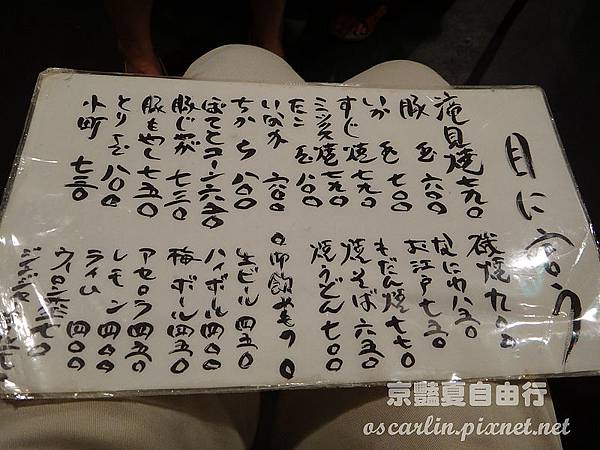 目に言う
滝見焼 七九〇
豚玉 六〇〇
いか玉 七〇〇
すじ焼 七九〇
ミックス焼 七九〇
たこ玉 八〇〇
いなか 六〇〇
ちから 八〇〇
ぽてとコーン 六五〇
豚じゃが 七三〇
豚もやし 七五〇
とり玉 八〇〇
小町 七三〇
磯焼 九〇〇
なにわ 八五〇
お江戸 七五〇
もだん焼 七七〇
焼そば 六五〇
焼うどん 七〇〇
〇御飲みもの〇
生ビール 四五〇
ハイボール 四〇〇
梅ボール 四五〇
アセロラ 四五〇
レモン 四〇〇
ライム 四〇〇
京豔夏自由行
oscarlin.pixnet.net